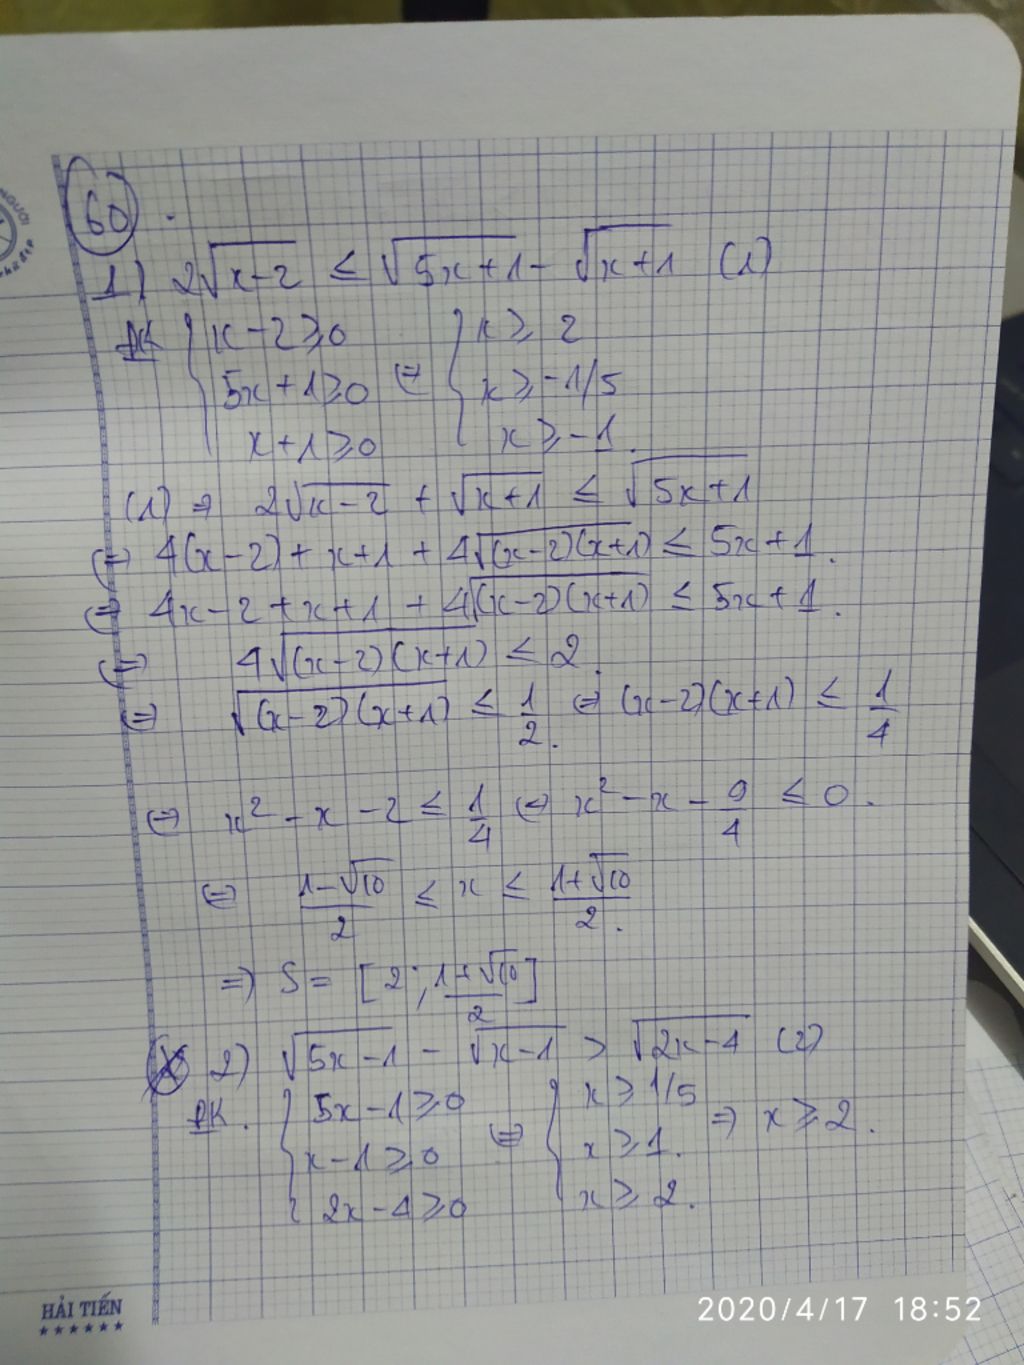 60.
1) 2√(x-2) ≤ √(5x+1) - √(x+1) (1)
ĐK { x-2 ≥ 0 { x ≥ 2
5x+1 ≥ 0 ⇔ x ≥ -1/5
x+1 ≥ 0 x ≥ -1.
(1) ⇒ 2√(x-2) + √(x+1) ≤ √(5x+1)
⇔ 4(x-2) + x+1 + 4√((x-2)(x+1)) ≤ 5x+1.
⇔ 4x-2+x+1 + 4√((x-2)(x+1)) ≤ 5x+1.
⇔ 4√((x-2)(x+1)) ≤ 2.
⇔ √((x-2)(x+1)) ≤ 1/2. ⇔ (x-2)(x+1) ≤ 1/4
⇔ x² - x - 2 ≤ 1/4 ⇔ x² - x - 9/4 ≤ 0.
⇔ (1-√10)/2 ≤ x ≤ (1+√10)/2.
⇒ S = [2; (1+√10)/2]
2) √(5x-1) - √(x-1) > √(2x-4) (2)
ĐK. { 5x-1 ≥ 0 { x ≥ 1/5
x-1 ≥ 0 ⇔ x ≥ 1. ⇒ x ≥ 2.
2x-4 ≥ 0 x ≥ 2.
HẢI TIẾN
2020/4/17 18:52